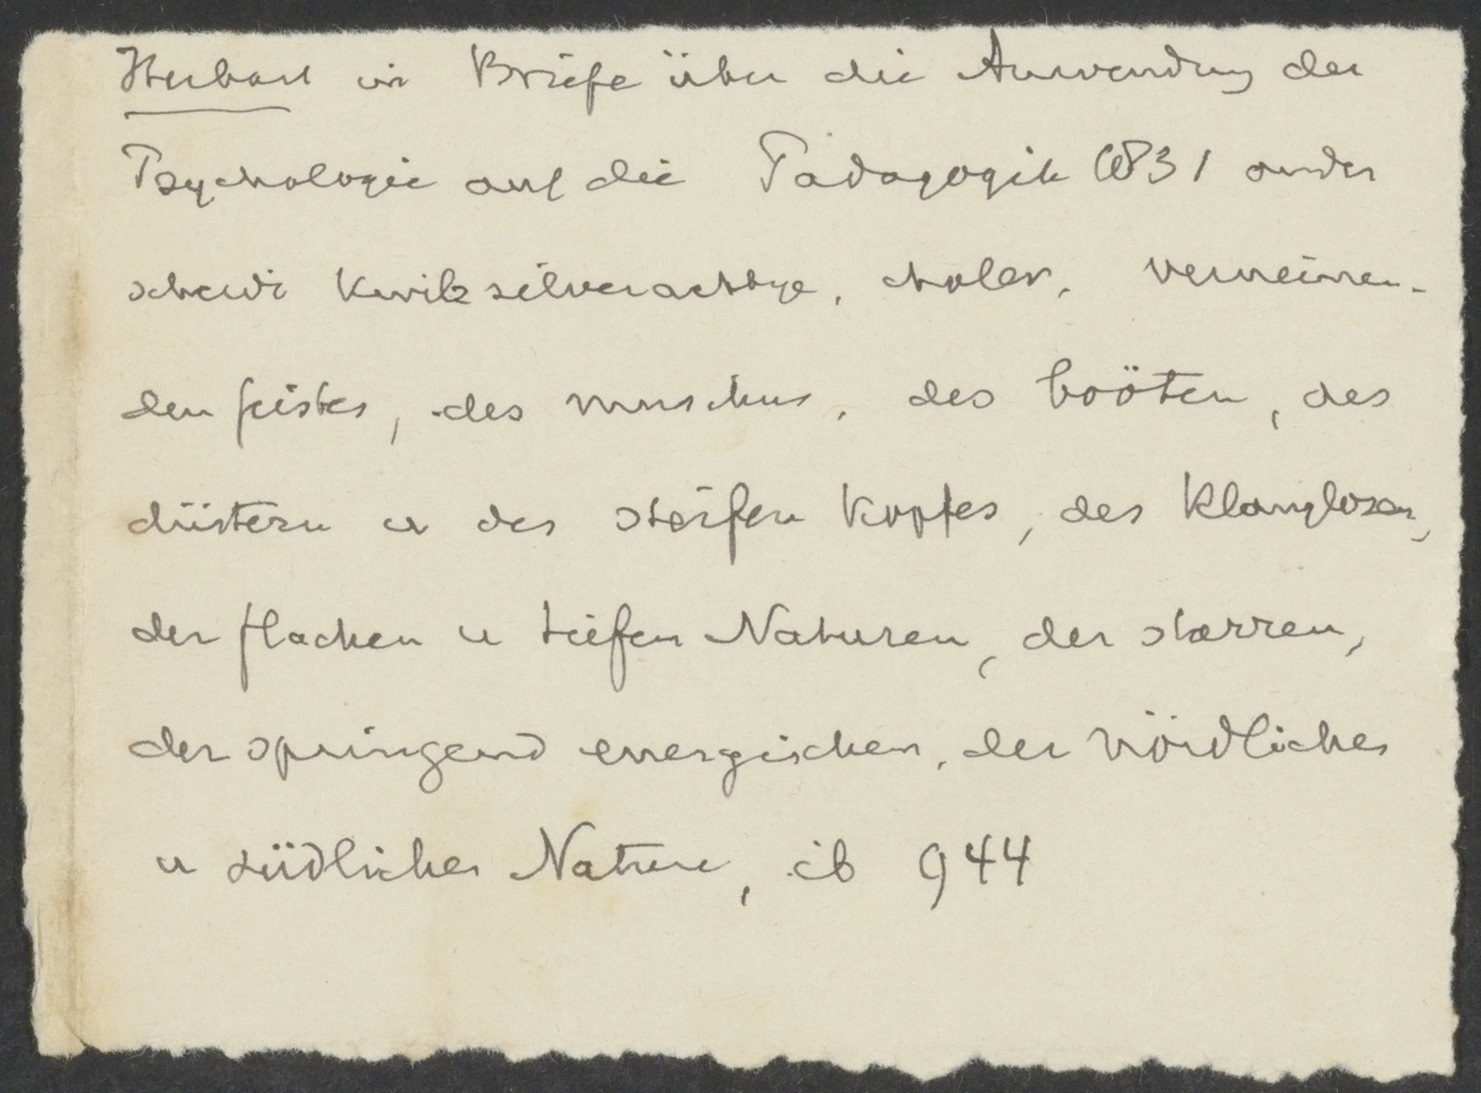 Herbart in Briefe über die Anwendung der
Psychologie auf die Pädagogik 1831 onder
scheidt kwikzilverachtige, choler. verneinen-
den Geistes, des musikus, des böoten, des
düstern u des steifen Kopfes, des Klanglosen,
der flachen u tiefen Naturen, der starren,
der springend energischen, der nördlichen
u südlichen Nature, ib 944